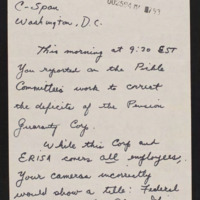 C-Span
Washington, D.C.
This morning at 9:30 EST
You reported on the Pickle
Committee's work to correct
the deficits of the Pension
Guaranty Corp.
While this Corp and
ERISA covers all employees,
Your cameras incorrectly
would show a title: Federal